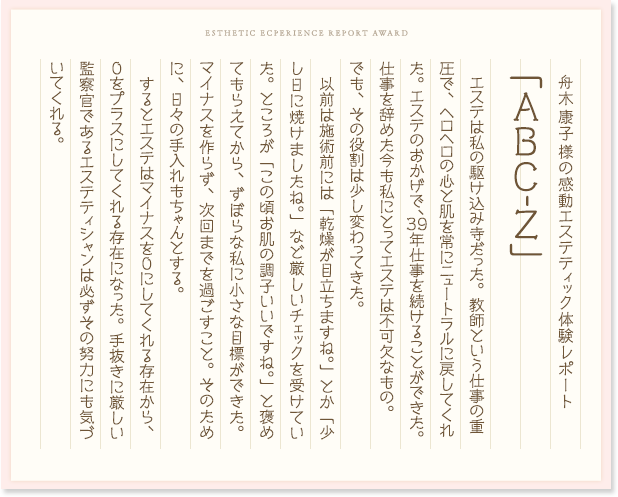 ESTHETIC ECPERIENCE REPORT AWARD
舟木 康子 様の感動エステティック体験レポート
「ABC-Z」
エステは私の駆け込み寺だった。教師という仕事の重
圧で、ヘロヘロの心と肌を常にニュートラルに戻してくれ
た。エステのおかげで、39年仕事を続けることができた。
仕事を辞めた今も私にとってエステは不可欠なもの。
でも、その役割は少し変わってきた。
以前は施術前には「乾燥が目立ちますね。」とか「少
し日に焼けましたね。」など厳しいチェックを受けてい
た。ところが「この頃お肌の調子いいですね。」と褒め
てもらえてから、ずぼらな私に小さな目標ができた。
マイナスを作らず、次回までを過ごすこと。そのため
に、日々の手入れもちゃんとする。
するとエステはマイナスを0にしてくれる存在から、
0をプラスにしてくれる存在になった。手抜きに厳しい
監察官であるエステティシャンは必ずその努力にも気づ
いてくれる。